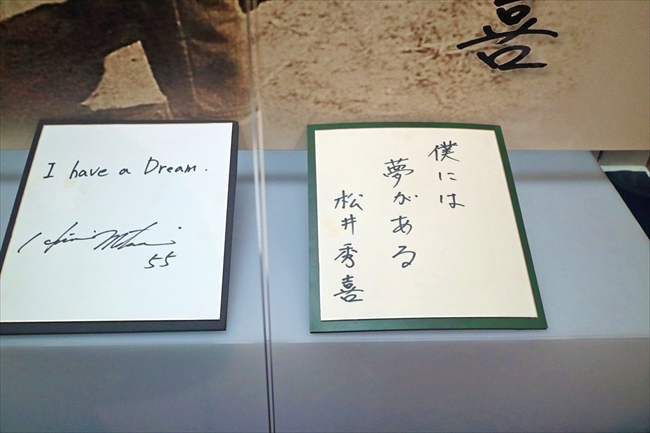 喜
I have a Dream.
55
僕には
夢がある
松井秀喜